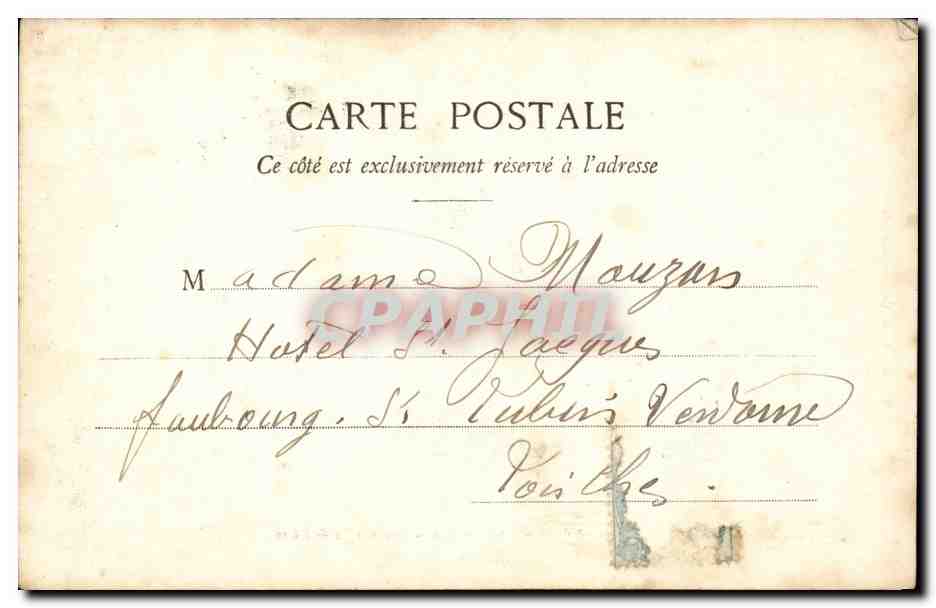 CARTE POSTALE
Ce côté est exclusivement réservé à l'adresse
Madame Mouzon
Hotel St. Jacques
faubourg. St Vendome
CPAPHIL